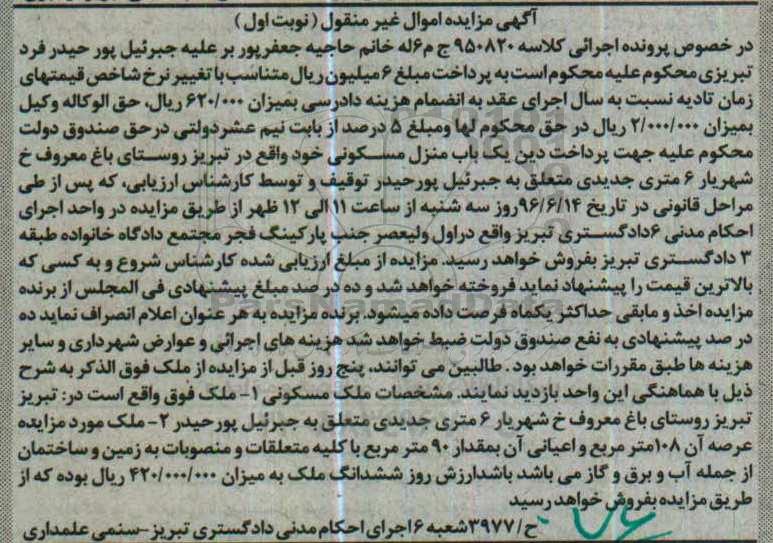 آگهی مزایده اموال غیر منقول (نوبت اول)
در خصوص پرونده اجرائی کلاسه ۹۵۰۸۲۰ ج م۶له خانم حاجیه جعفرپور بر علیه جبرئیل پور حیدر فرد
تبریزی محکوم علیه محکوم است به پرداخت مبلغ ۶ میلیون ریال متناسب با تغییر نرخ شاخص قیمتهای
زمان تادیه نسبت به سال اجرای عقد به انضمام هزینه دادرسی بمیزان ۶۲۰/۰۰۰ ریال، حق الوکاله وکیل
بمیزان ۲/۰۰۰/۰۰۰ ریال در حق محکوم لها ومبلغ ۵ درصد از بابت نیم عشردولتی درحق صندوق دولت
محکوم علیه جهت پرداخت دین یک باب منزل مسکونی خود واقع در تبریز روستای باغ معروف خ
شهریار ۶ متری جدیدی متعلق به جبرئیل پورحیدر توقیف و توسط کارشناس ارزیابی، که پس از طی
مراحل قانونی در تاریخ ۹۶/۶/۱۴روز سه شنبه از ساعت ۱۱ الی ۱۲ ظهر از طریق مزایده در واحد اجرای
احکام مدنی ۶دادگستری تبریز واقع دراول ولیعصر جنب پارکینگ فجر مجتمع دادگاه خانواده طبقه
۳ دادگستری تبریز بفروش خواهد رسید. مزایده از مبلغ ارزیابی شده کارشناس شروع و به کسی که
بالاترین قیمت را پیشنهاد نماید فروخته خواهد شد و ده در صد مبلغ پیشنهادی فی المجلس از برنده
مزایده اخذ و مابقی حداکثر یکماه فرصت داده میشود. برنده مزایده به هر عنوان اعلام انصراف نماید ده
در صد پیشنهادی به نفع صندوق دولت ضبط خواهد شد هزینه های اجرائی و عوارض شهرداری و سایر
هزینه ها طبق مقررات خواهد بود. طالبین می توانند، پنج روز قبل از مزایده از ملک فوق الذکر به شرح
ذیل با هماهنگی این واحد بازدید نمایند. مشخصات ملک مسکونی ۱- ملک فوق واقع است در: تبریز
تبریز روستای باغ معروف خ شهریار ۶ متری جدیدی متعلق به جبرئیل پورحیدر ۲- ملک مورد مزایده
عرصه آن ۱۰۸متر مربع و اعیانی آن بمقدار ۹۰ متر مربع با کلیه متعلقات و منصوبات به زمین و ساختمان
از جمله آب و برق و گاز می باشد باشدارزش روز ششدانگ ملک به میزان ۴۲۰/۰۰۰/۰۰۰ ریال بوده که از
طریق مزایده بفروش خواهد رسید
ح/۳۹۷۷شعبه ۶ اجرای احکام مدنی دادگستری تبریز-سنمی علمداری
ParsNamadData